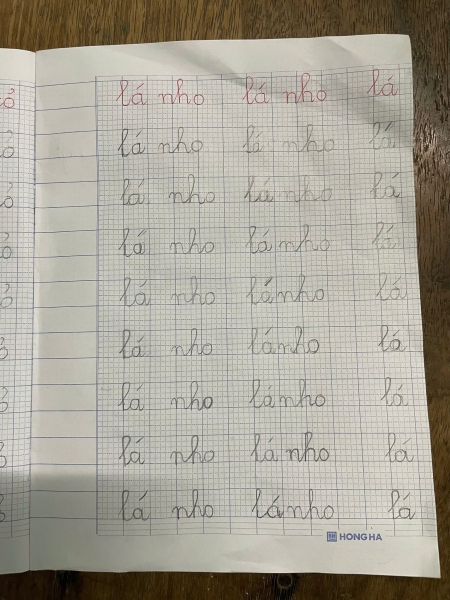 lá nho lá nho lá
lá nho lá nho lá
lá nho lá nho lá
lá nho lá nho lá
lá nho lá nho lá
lá nho lá nho lá
lá nho lá nho lá
lá nho lá nho lá
lá nho lá nho lá
HONG HA